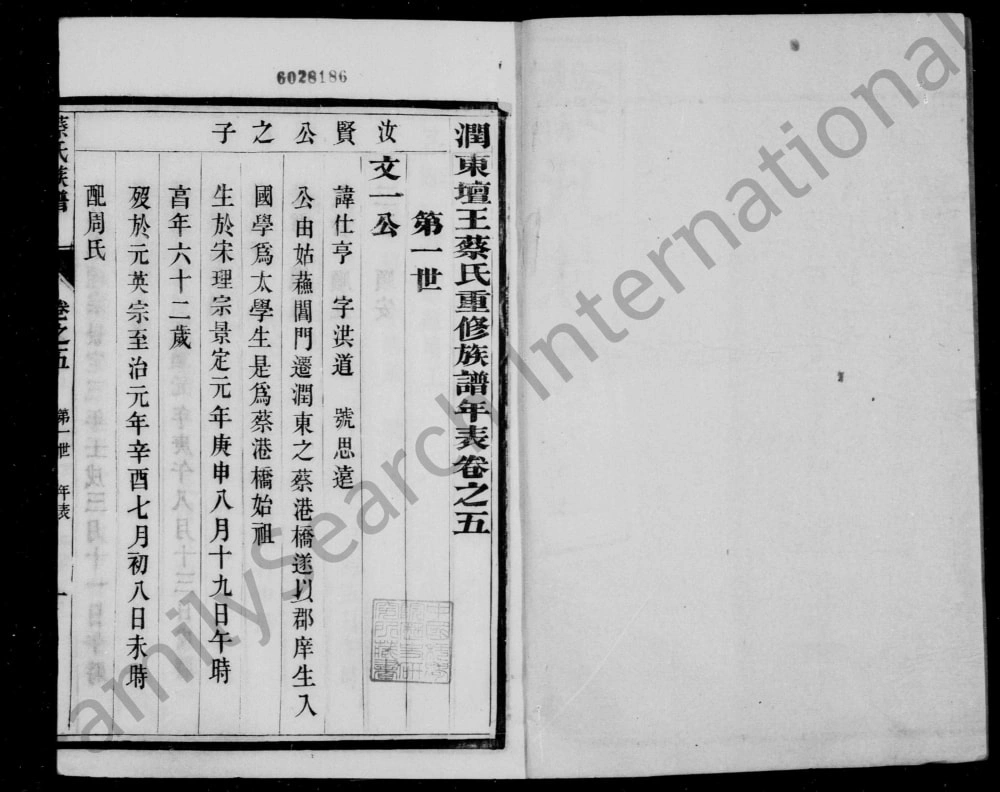 6028186
潤東壇王蔡氏重修族譜年表卷之五
第一世
汝賢公之子
文一公
諱仕亨 字洪道 號思遠
公由姑蘓閶門遷潤東之蔡港橋遂以郡庠生入
國學爲太學生是爲蔡港橋始祖
生於宋理宗景定元年庚申八月十九日午時
亯年六十二歲
歿於元英宗至治元年辛酉七月初八日未時
配周氏
蔡氏族譜 卷之五 第一世 年表 一
amilySearch International